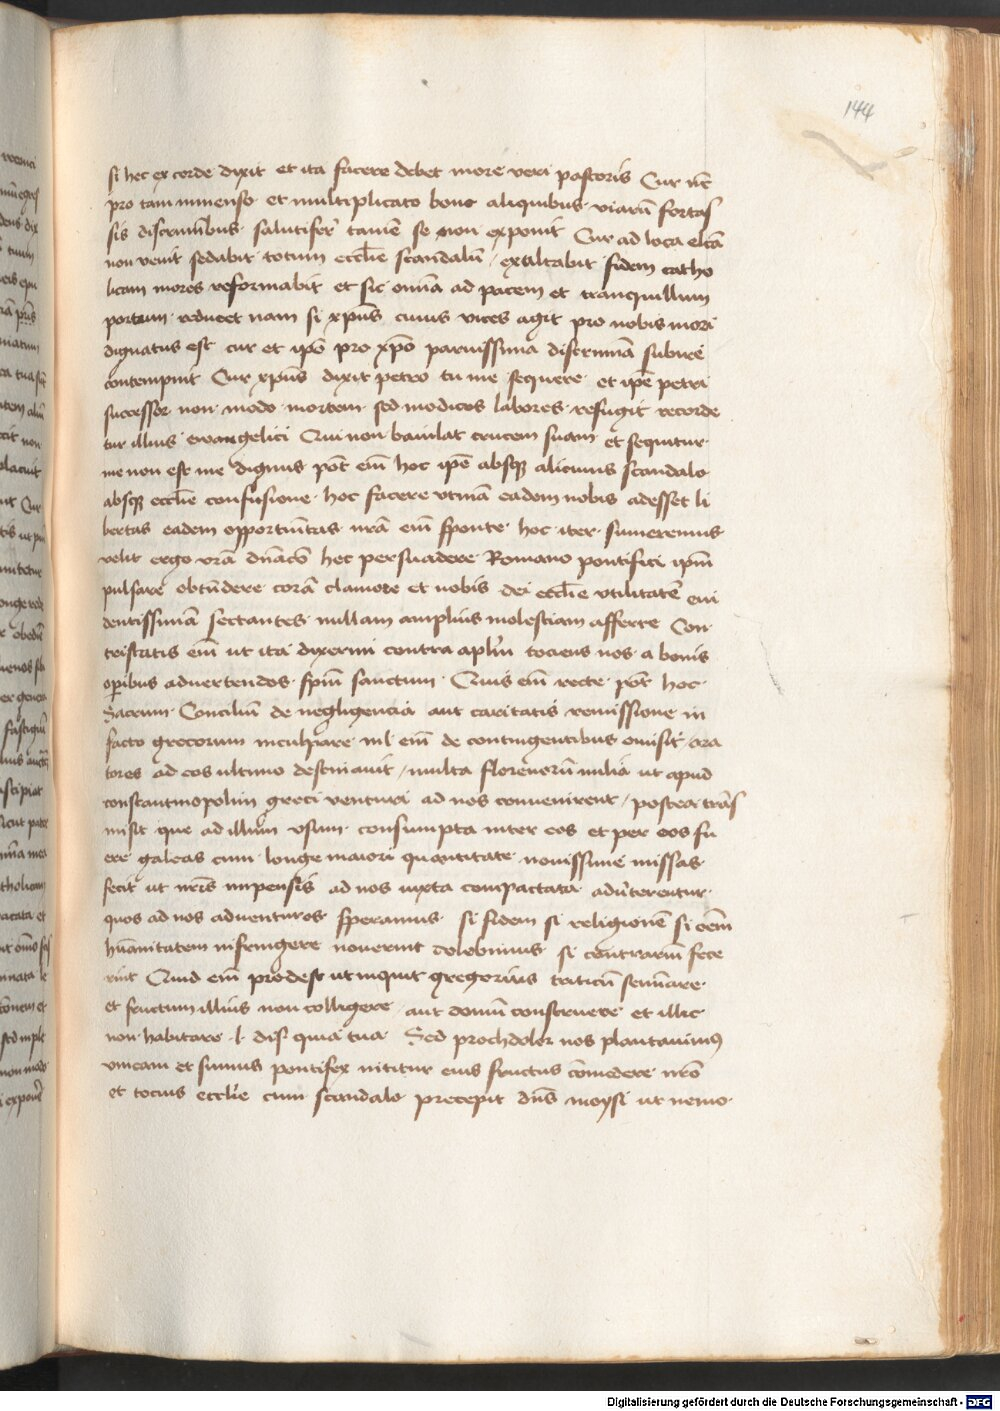 144
si hec ex corde dixit et ita facere debet more veri pastoris Cur nt̄
pro tam immenso et multiplicato bono aliquibus viarū fortas
sis discrimībus salutifer̄ tamē se non exponit Cur ad loca elc̄ā
non venit sedabit totum eccl̄ie scandalū / exaltabit fidem catho
licam mores reformabit et sic omīa ad pacem et tranquillum
portum reducet nam si xp̄us cuius vices agit pro nobis mori
dignatus est cur et ip̄e pro xp̄o paruissima discrimīa subire
contempnit Cur xp̄us dixit petro tu me sequere et ip̄e petri
successor non modo mortem sed modicos labores refugit recorde
tur illius ewangelici Qui non baiulat crucem suam et sequitur
me non est me dignus pōt eīn hoc ip̄e absqʒ alicuius scandalo
absqʒ eccl̄ie confusione hoc facere vtinā eadem nobis adesset li
bertas eadem opportūitas nr̄ā eīn sponte hoc iter sumeremus
velit ergo vr̄ā dn̄acō hec persuadere Romano pontifici ip̄m
pulsare obtūdere corā clamore et nobis dei eccl̄ie vtilitatē eui
dentissimā sectantes nullam amplius molestiam afferre Con
tristatis eīn ut ita dixerim contra ap̄lm̄ tociens nos a bonis
oꝑibus aduertendos sp̄m sanctum Quis eīn recte pōt hoc
Sacrum Conciliū de negligencia aut caritatis remissione in
facto grecorum inculpare nl̄ eīn de contingentibus omisit ora
tores ad eos ultimo destinauit / multa florenorū milia ut apud
constantinopolim greci venturi ad nos conuenirent / postea trās
misit que ad illum vsum consumpta inter eos et per eos fu
ere galeas cum longe maiori quantitate nouissime missas
fecit ut nr̄is impensis ad nos iuxta compactata adūterentur
quos ad nos aduenturos speramus si fidem si religionē si oēm
hūanitatem infringere nouerint dolebimus si contrariū fece
rint Quid eīn prodest ut inquit gregorius triticū semīare
et fructum illius non colligere / aut domū construere et illic
non habitare l. dis. quia tua Sed prochdolor nos plantauimꝰ
vineam et sumus pontifex nititur eius fructus cōmedere nr̄o
et tocius eccl̄ie cum scandalo precepit dn̄s moysi ut nemo
Digitalisierung gefördert durch die Deutsche Forschungsgemeinschaft - DFG